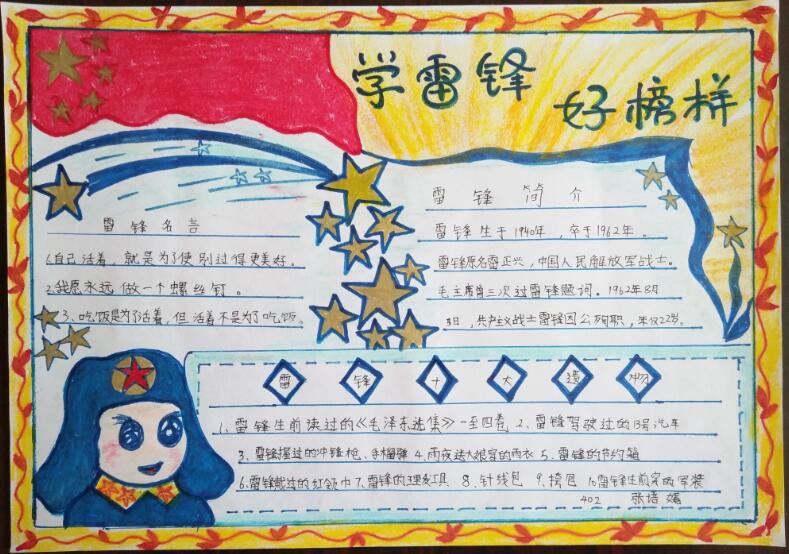 学雷锋
好榜样
雷锋名言
1.自己活着,就是为了使别过得更美好。
2.我愿永远做一个螺丝钉。
3、吃饭是为了活着,但活着不是为了吃饭。
雷锋简介
雷锋生于1940年,卒于1962年。
雷锋原名雷正兴,中国人民解放军战士。
毛主席曾三次过雷锋题词。1962年8月
日,共产主义战士雷锋因公殉职,年仅22岁。
雷锋十大遗物
1、雷锋生前读过的《毛泽东选集》一至四卷 2、雷锋驾驶过的13号汽车
3、雷锋握过的冲锋枪、手榴弹 4.雨夜送大娘穿的雨衣 5、雷锋的节约箱
6.雷锋戴过的红领巾 7、雷锋的理发工具 8、针线包 9、挎包 10雷锋生前穿的军装
402 张培嫣